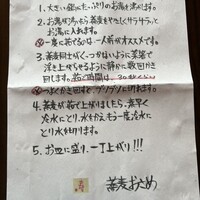 1. 大きい鍋にたっぷりのお湯を沸かす。
2. お湯が沸いたら蕎麦をやさしくサラサラと
お湯に入れます。
※一度に茹でるのは、一人前がオススメです。
3. 蕎麦同士がくっつかないように菜箸で
浮き上がらせるように静かに数回かき
回します。茹で時間は、30秒くらい
※よくかき回すと、ブツブツに切れます。
4. 蕎麦が茹で上がりましたら、素早く
冷水にとり、水をかえ、もう一度冷水に
とり水を切ります。
5. お皿に盛り、一丁上がり!!!
蕎麦おとめ